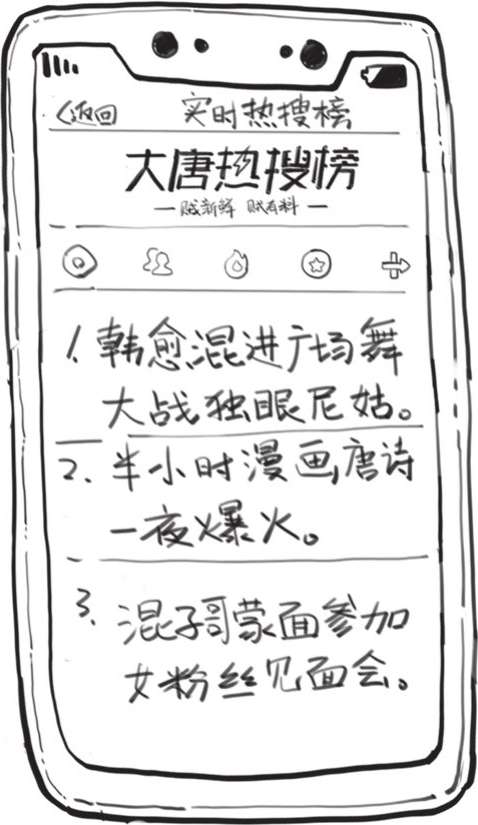 返回 实时热搜榜
大唐热搜榜
— 贼新鲜 贼有料 —
1. 韩愈混进广场舞
大战独眼尼姑。
2. 半小时漫画唐诗
一夜爆火。
3. 混子哥蒙面参加
女粉丝见面会。